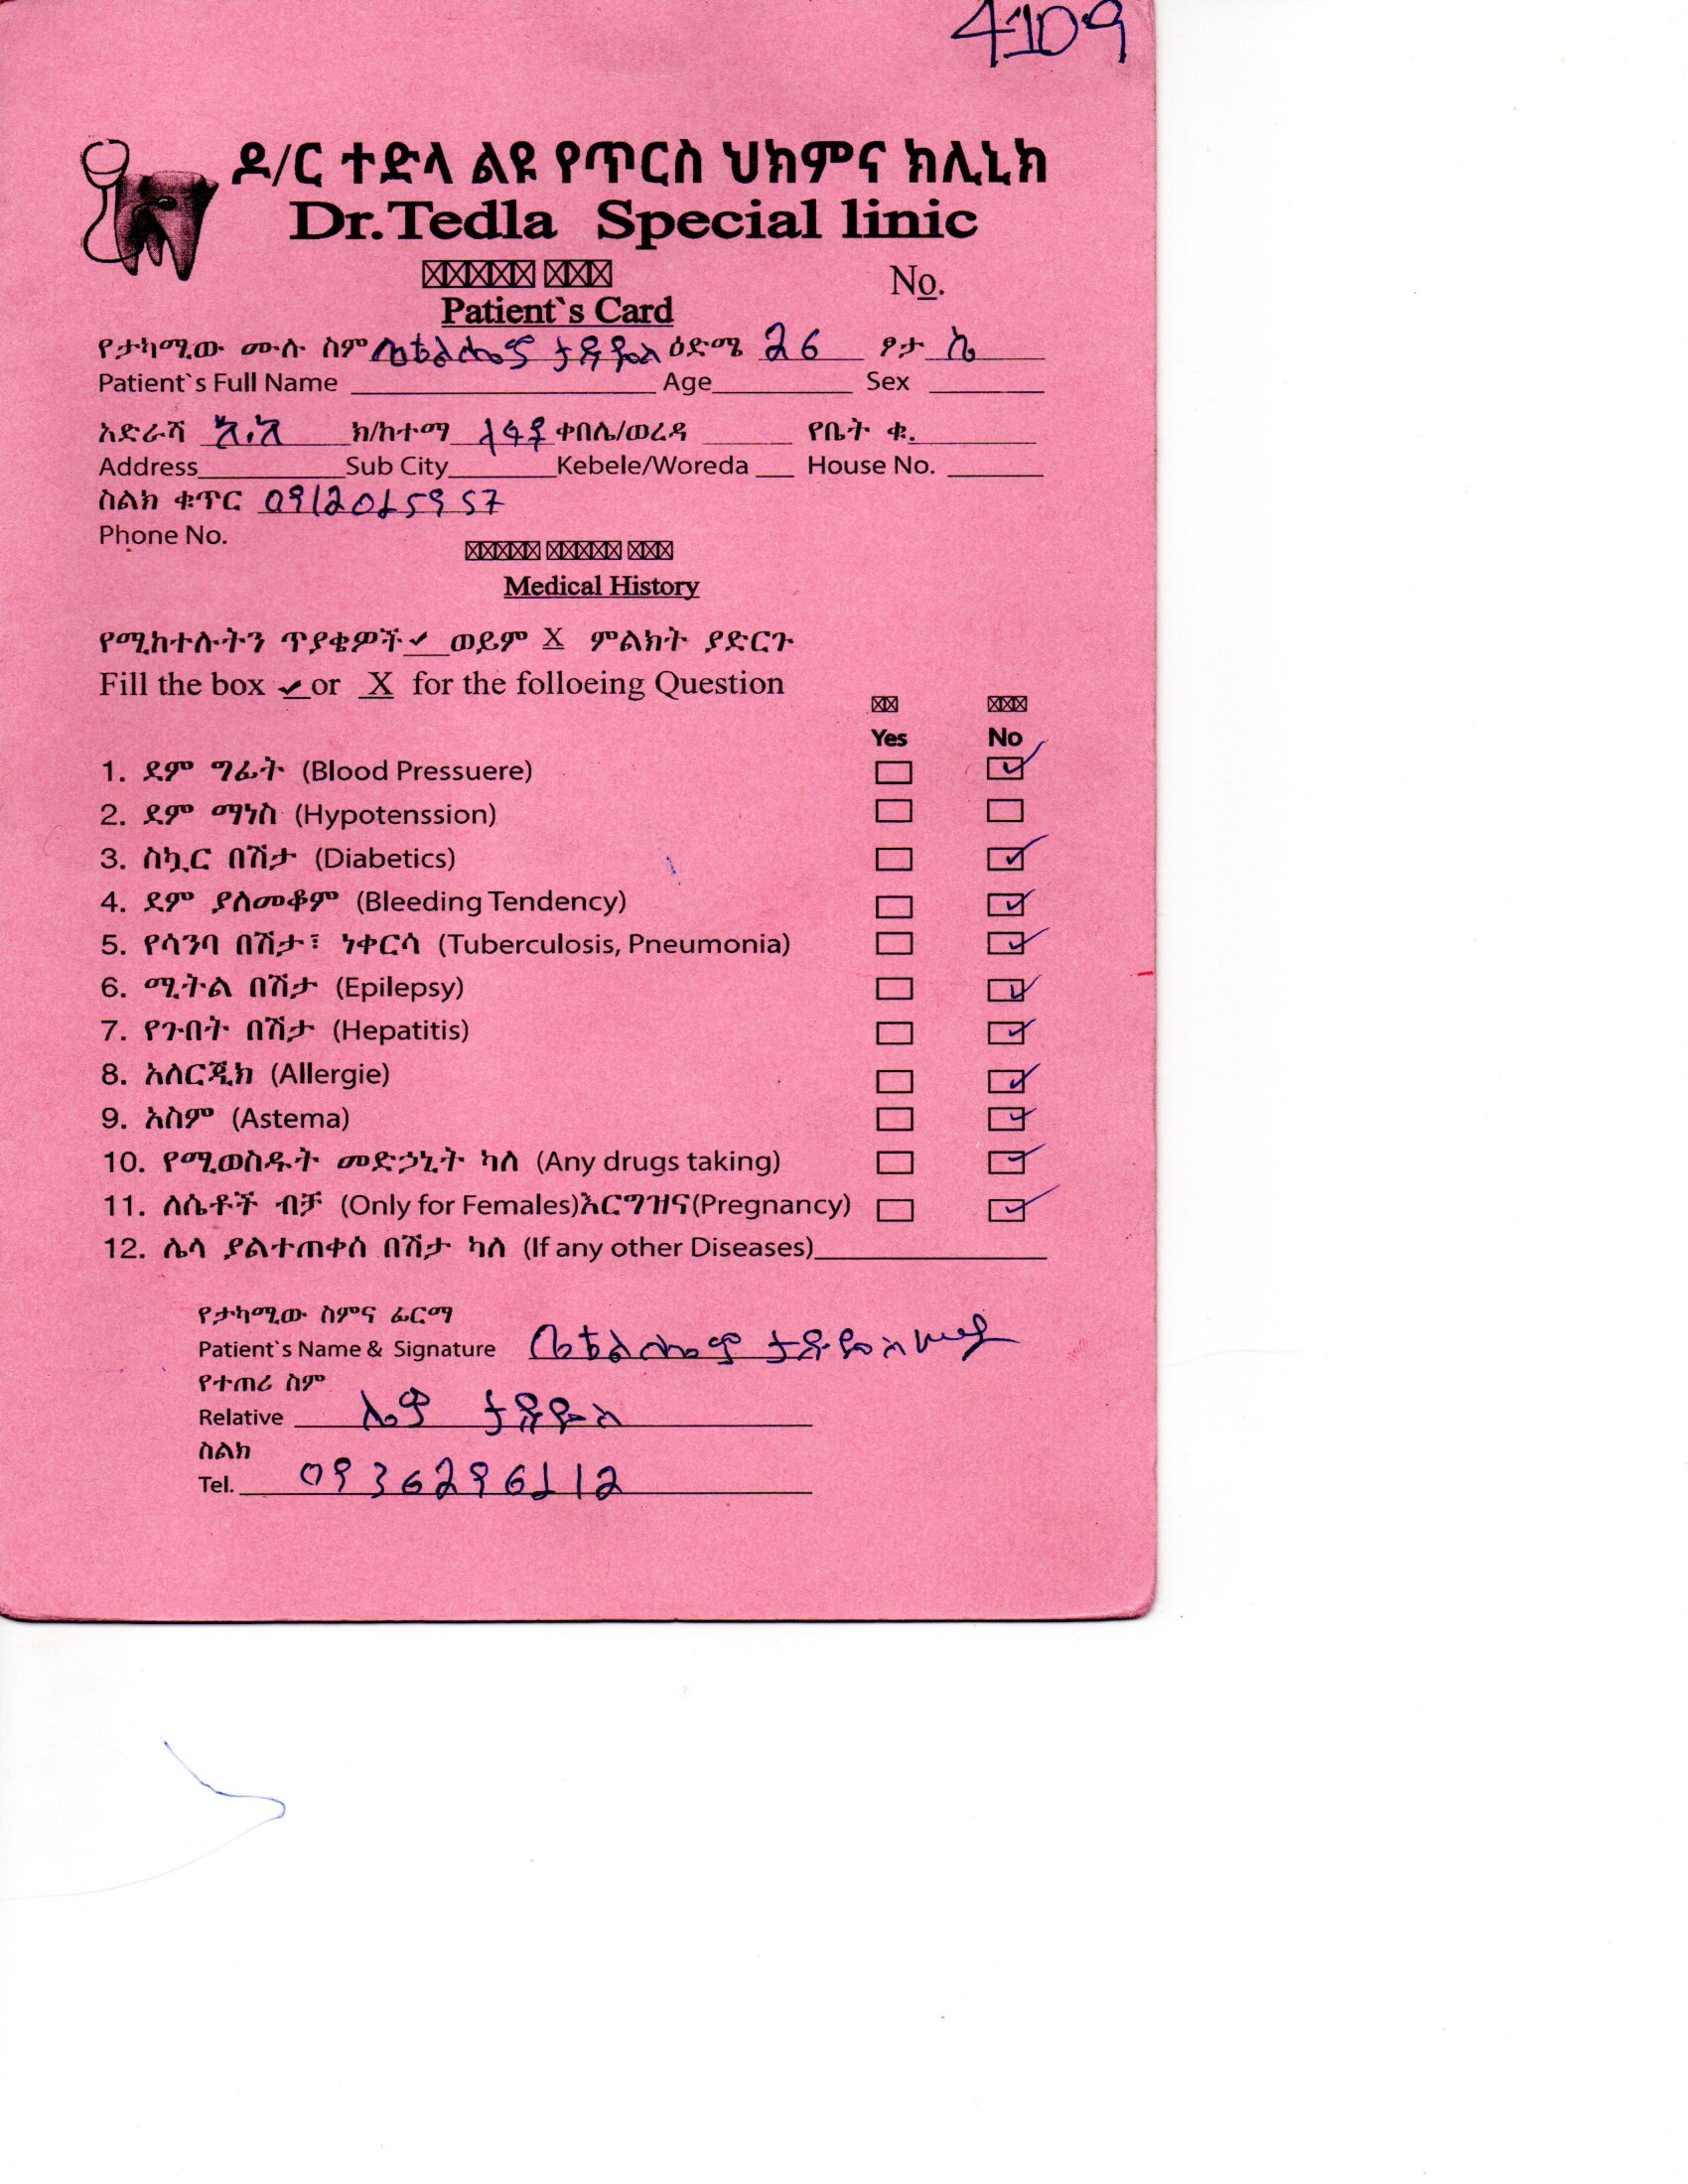 4109
ዶ/ር ተድላ ልዩ የጥርስ ህክምና ክሊኒክ
Dr.Tedla Special linic
No.
Patient`s Card
የታካሚው ሙሉ ስም ቤቴልሔም ታዲዎስ ዕድሜ 26 ፆታ ሴ
Patient`s Full Name Age Sex
አድራሻ አ.አ ክ/ከተማ ቀበሌ/ወረዳ የቤት ቁ.
Address Sub City Kebele/Woreda House No.
ስልክ ቁጥር 0912015957
Phone No.
Medical History
የሚከተሉትን ጥያቄዎች ✓ ወይም X ምልክት ያድርጉ
Fill the box ✓ or X for the folloeing Question
Yes No
1. ደም ግፊት (Blood Pressuere) ✓
2. ደም ማነስ (Hypotenssion)
3. ስኳር በሽታ (Diabetics) ✓
4. ደም ያለመቆም (Bleeding Tendency) ✓
5. የሳንባ በሽታ፣ ነቀርሳ (Tuberculosis, Pneumonia) ✓
6. ሚትል በሽታ (Epilepsy) ✓
7. የጉበት በሽታ (Hepatitis) ✓
8. አለርጂክ (Allergie) ✓
9. አስም (Astema) ✓
10. የሚወስዱት መድኃኒት ካለ (Any drugs taking) ✓
11. ለሴቶች ብቻ (Only for Females)እርግዝና(Pregnancy) ✓
12. ሌላ ያልተጠቀሰ በሽታ ካለ (If any other Diseases)
የታካሚው ስምና ፊርማ
Patient`s Name & Signature ቤቴልሔም ታዲዎስ
የተጠሪ ስም
Relative ታዲዎስ
ስልክ
Tel. 0936296112